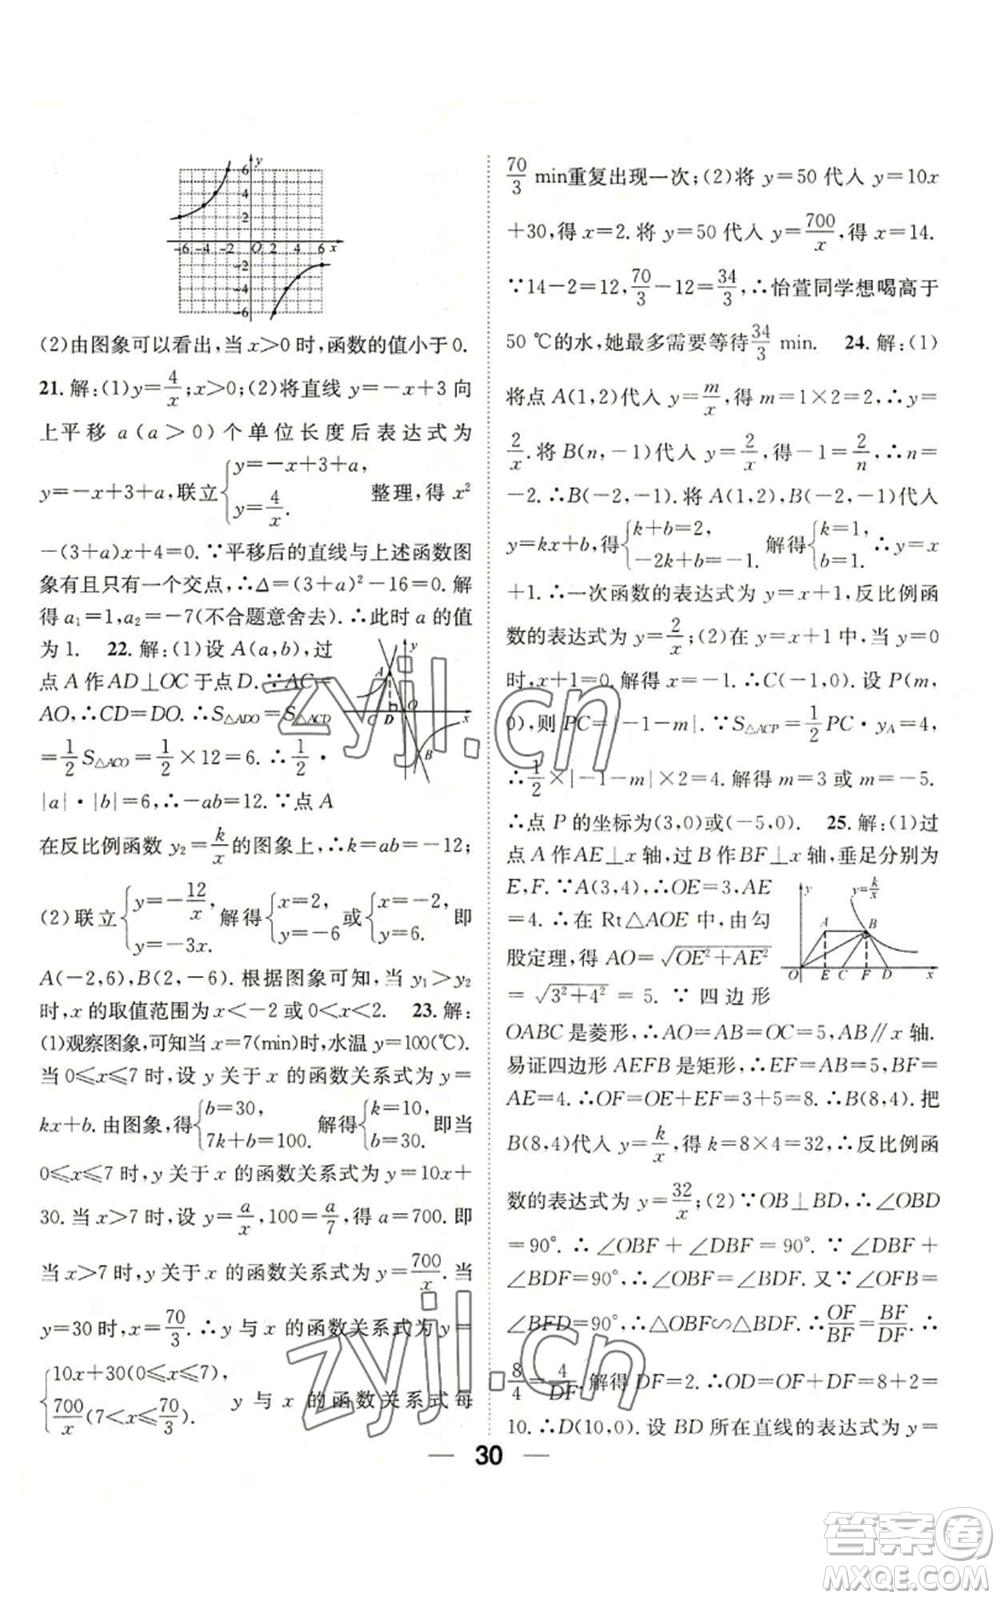 y
6
4
2
-6 -4 -2 O 2 4 6 x
-2
-4
-6
(2)由图象可以看出,当 x>0 时,函数的值小于 0.
21. 解:(1)y=4/x;x>0;(2)将直线 y=-x+3 向
上平移 a(a>0)个单位长度后表达式为
y=-x+3+a,联立{y=-x+3+a, y=4/x. 整理,得 x²
-(3+a)x+4=0.∵平移后的直线与上述函数图
象有且只有一个交点,∴Δ=(3+a)²-16=0.解
得 a₁=1,a₂=-7(不合题意舍去).∴此时 a 的值
为 1. 22. 解:(1)设 A(a,b),过
点 A 作 AD⊥OC 于点 D.∵AC=
AO,∴CD=DO.∴S△ADO=S△ACD
=1/2 S△ACO=1/2×12=6.∴1/2·
|a|·|b|=6,∴-ab=12.∵点 A
y
A
C D O x
B
在反比例函数 y₂=k/x 的图象上,∴k=ab=-12;
(2)联立{y=-12/x, y=-3x. 解得{x=2, y=-6 或{x=-2, y=6, 即
A(-2,6),B(2,-6).根据图象可知,当 y₁>y₂
时,x 的取值范围为 x<-2 或 0<x<2. 23. 解:
(1)观察图象,可知当 x=7(min)时,水温 y=100(℃).
当 0≤x≤7 时,设 y 关于 x 的函数关系式为 y=
kx+b.由图象,得{b=30, 7k+b=100. 解得{k=10, b=30. 即当
0≤x≤7 时,y 关于 x 的函数关系式为 y=10x+
30.当 x>7 时,设 y=a/x,100=a/7,得 a=700.即
当 x>7 时,y 关于 x 的函数关系式为 y=700/x.当
y=30 时,x=70/3.∴y 与 x 的函数关系式为 y=
{10x+30(0≤x≤7), 700/x(7<x≤70/3). y 与 x 的函数关系式每
70/3 min重复出现一次;(2)将 y=50 代入 y=10x
+30,得 x=2.将 y=50 代入 y=700/x,得 x=14.
∵14-2=12,70/3-12=34/3,∴怡萱同学想喝高于
50 ℃的水,她最多需要等待34/3 min. 24. 解:(1)
将点 A(1,2)代入 y=m/x,得 m=1×2=2,∴y=
2/x.将 B(n,-1)代入 y=2/x,得-1=2/n,∴n=
-2.∴B(-2,-1).将 A(1,2),B(-2,-1)代入
y=kx+b,得{k+b=2, -2k+b=-1. 解得{k=1, b=1. ∴y=x
+1.∴一次函数的表达式为 y=x+1,反比例函
数的表达式为 y=2/x;(2)在 y=x+1 中,当 y=0
时,x+1=0,解得 x=-1.∴C(-1,0).设 P(m,
0),则 PC=|-1-m|.∵S△ACP=1/2 PC·yA=4,
∴1/2×|-1-m|×2=4.解得 m=3 或 m=-5.
∴点 P 的坐标为(3,0)或(-5,0). 25. 解:(1)过
点 A 作AE⊥x 轴,过 B 作BF⊥x 轴,垂足分别为
E,F.∵A(3,4),∴OE=3,AE
=4.∴在 Rt△AOE 中,由勾
股定理,得 AO=√OE²+AE²
=√3²+4²=5.∵四边形
y
y=k/x
A B
O E C F D x
OABC 是菱形,∴AO=AB=OC=5,AB∥x 轴.
易证四边形 AEFB 是矩形,∴EF=AB=5,BF=
AE=4.∴OF=OE+EF=3+5=8.∴B(8,4).把
B(8,4)代入 y=k/x,得 k=8×4=32,∴反比例函
数的表达式为 y=32/x;(2)∵OB⊥BD,∴∠OBD
=90°.∴∠OBF+∠DBF=90°.∵∠DBF+
∠BDF=90°,∴∠OBF=∠BDF.又∵∠OFB=
∠BFD=90°,∴△OBF∽△BDF.∴OF/BF=BF/DF.∴
8/4=4/DF.解得 DF=2.∴OD=OF+DF=8+2=
10.∴D(10,0).设 BD 所在直线的表达式为 y=
— 30 —
zyjl.cn
zyjl.cn
答案卷
MXQE.COM